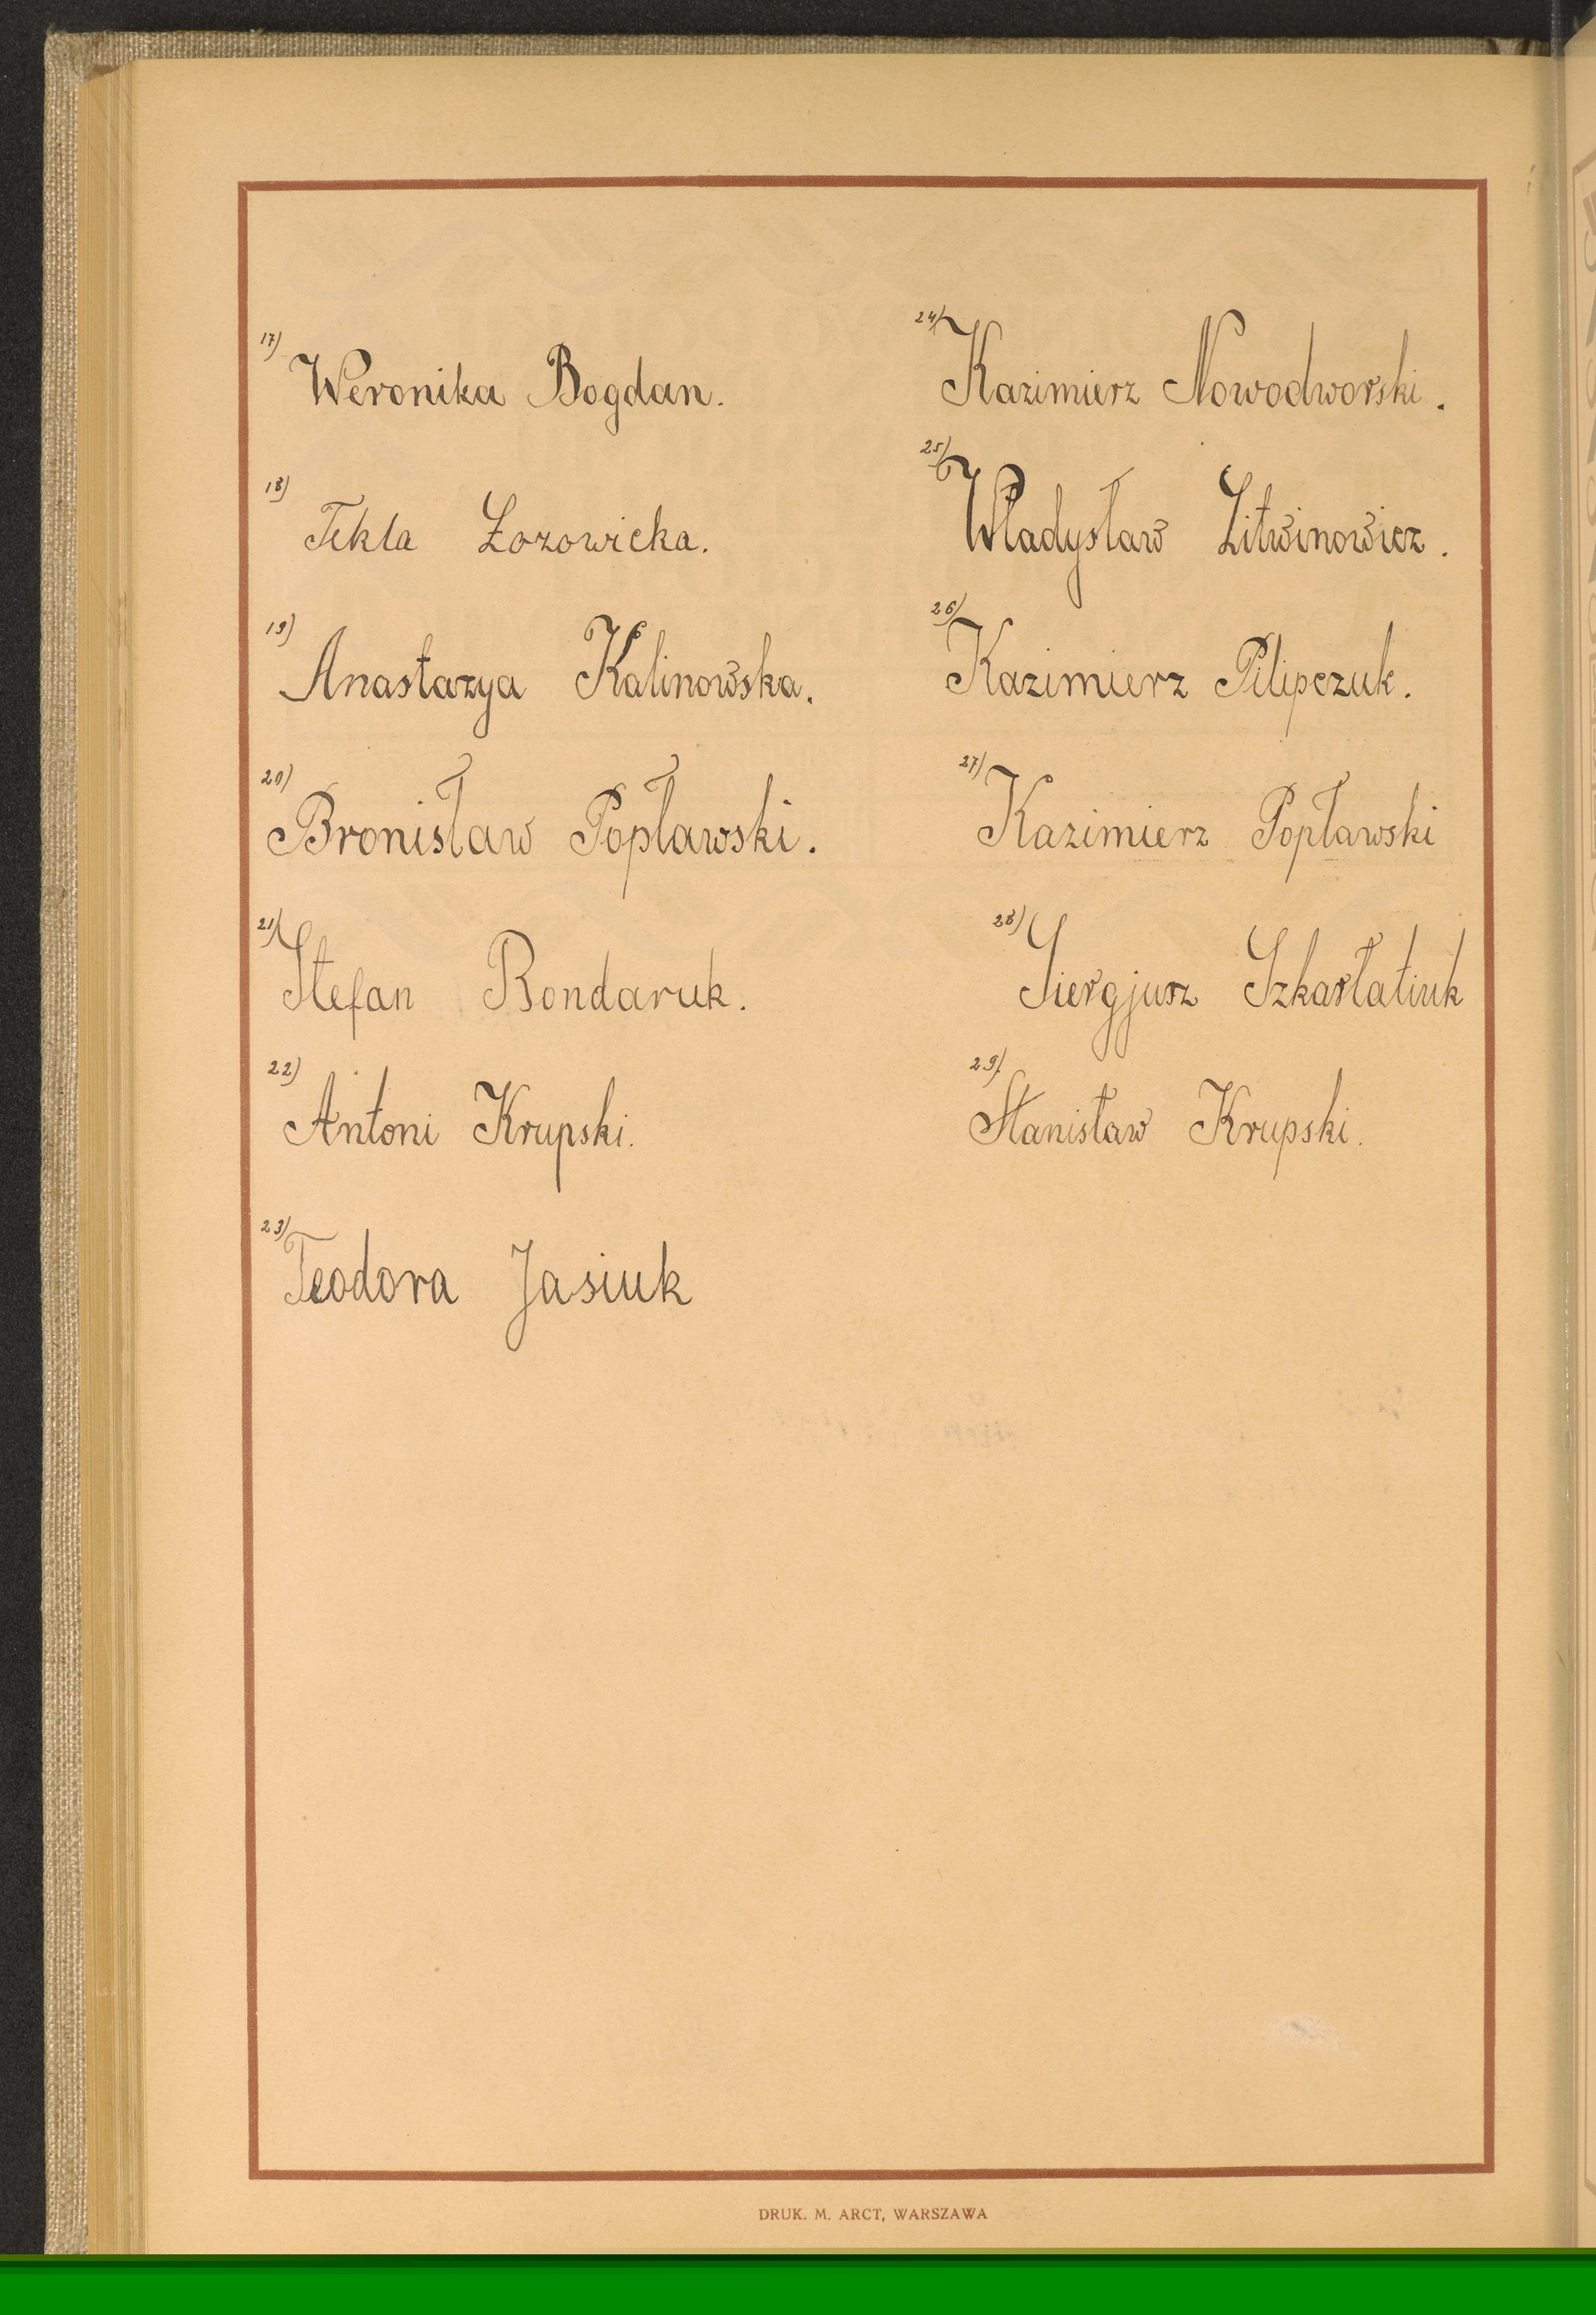 17) Weronika Bogdan.
18) Tekla Łozowicka.
19) Anastazya Kalinowska.
20) Bronisław Popławski.
21) Stefan Bondaruk.
22) Antoni Krupski.
23) Teodora Jasiuk
24) Kazimierz Nowodworski.
25) Władysław Litwinowicz.
26) Kazimierz Pilipczuk.
27) Kazimierz Popławski
28) Siergjusz Szkarłatiuk
29) Stanisław Krupski.
DRUK. M. ARCT, WARSZAWA